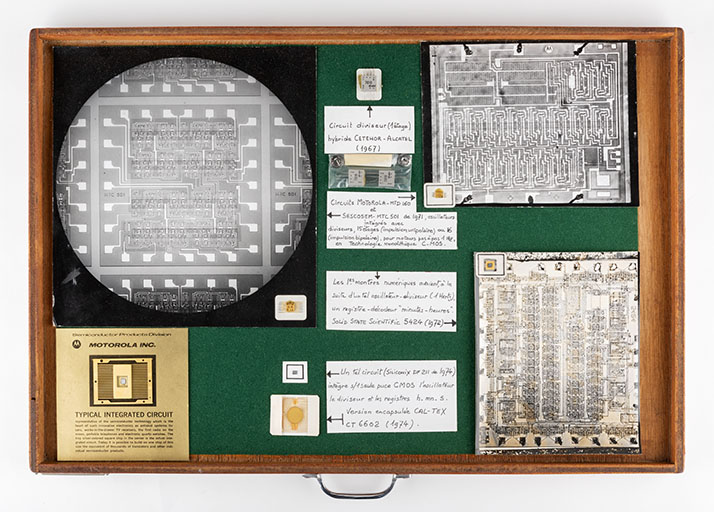 Circuit diviseur (1 étage)
hybride CETEHOR-ALCATEL
(1967)
Circuits MOTOROLA-MTD 160
et
SESCOSEM-MTC 501 de 1971, oscillateurs
intégrés avec
diviseurs, 15 étages (impulsion unipolaire) ou 16
(impulsion bipolaire), pour moteurs pas à pas 1 Hz,
en Technologie monolithique C.MOS.
Les 1res montres numériques avaient, à la
suite d'un tel oscillateur-diviseur (1 Hertz),
un registre-décodeur "minutes-heures".
SOLID STATE SCIENTIFIC 5424 (1972)
Un tel circuit (Siliconix DF 211 de 1974)
intègre s/1 seule puce CMOS l'oscillateur
le diviseur et les registres h. mn. s.
Version encapsulée CAL-TEX
CT 6602 (1974).
MTC 501
Semiconductor Products Division
MOTOROLA INC.
TYPICAL INTEGRATED CIRCUIT